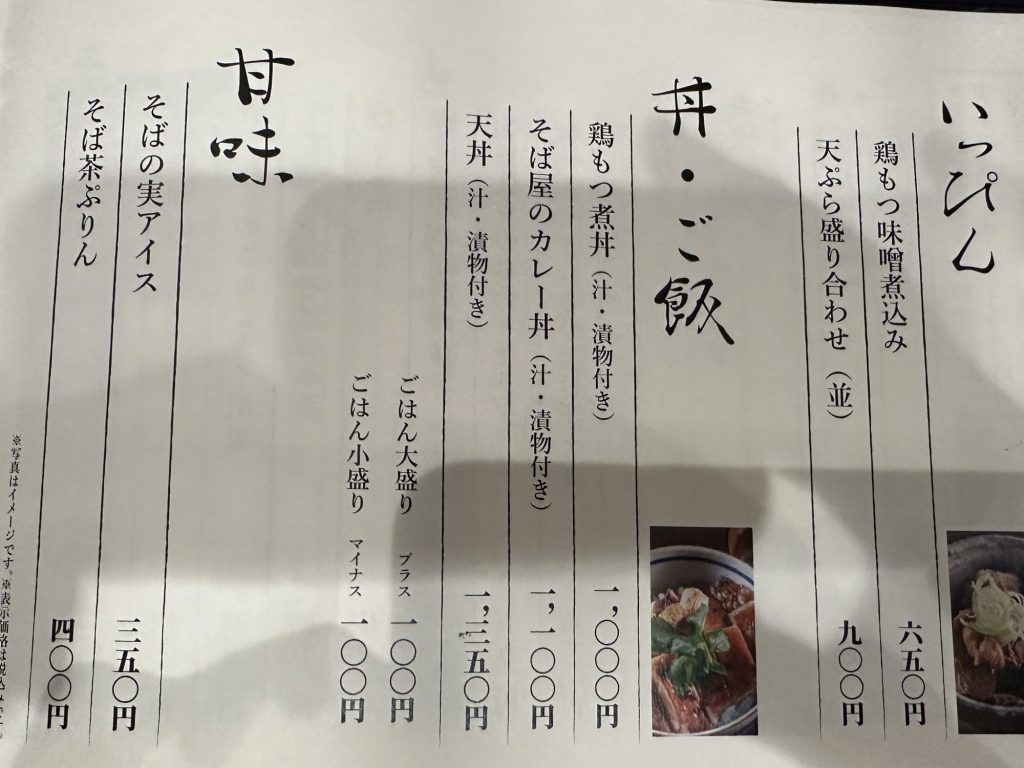 いっぴん
鶏もつ味噌煮込み 六五〇円
天ぷら盛り合わせ（並） 九〇〇円
丼・ご飯
鶏もつ煮丼（汁・漬物付き） 一,〇〇〇円
そば屋のカレー丼（汁・漬物付き） 一,一〇〇円
天丼（汁・漬物付き） 一,三五〇円
ごはん大盛り プラス 一〇〇円
ごはん小盛り マイナス 一〇〇円
甘味
そばの実アイス 三五〇円
そば茶ぷりん 四〇〇円
※写真はイメージです。※表示価格は税込みです。